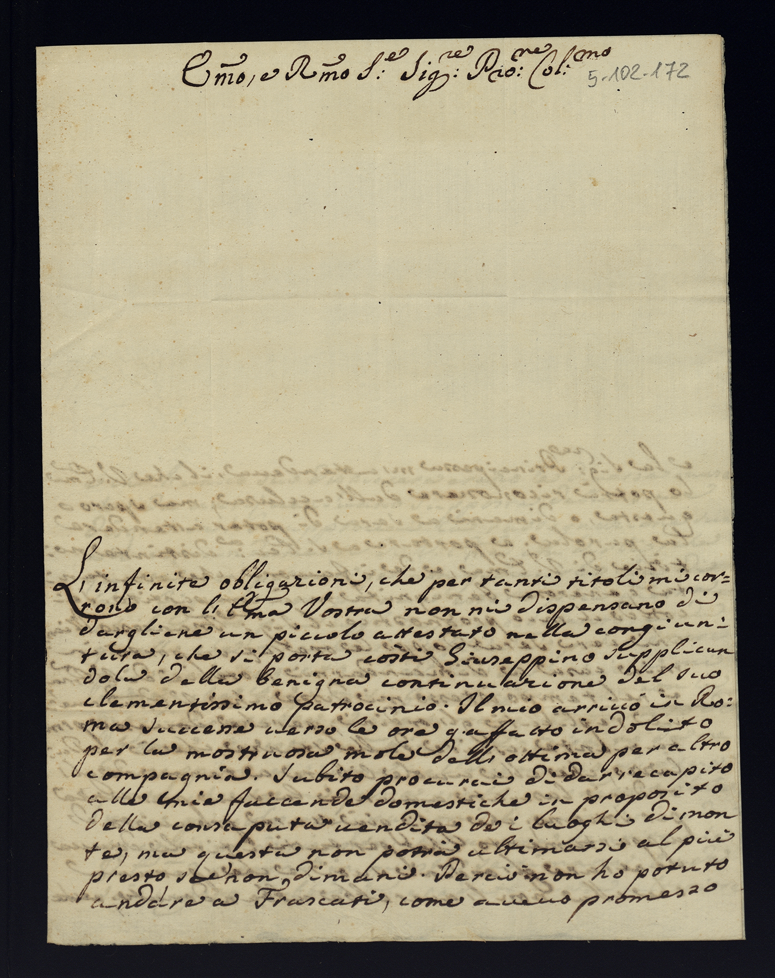 Emo, e Rmo S:e Sigre: Prone: Col:mo
5-102-172
L'infinite obligazioni, che per tanti titoli mi cor=
rono con l'Ema Vostra non mi dispensano di
dargliene un piccolo attestato nella congiun:
tura, che si porta costì Giuseppino supplican
dola della benigna continuazione del suo
clementissimo patrocinio. Il mio arrivo in Ro:
ma successe verso le ore 9 affatto indolito
per la mostruosa mole dell'ottima per altro
compagnia. Subito procurai di dar recapito
alle mie faccende domestiche in proposito
della consaputa vendita dei luoghi di mon
te, ma questa non potrà ultimarsi al più
presto se non dimani. Perciò non ho potuto
andare a Frascati, come avevo promesso